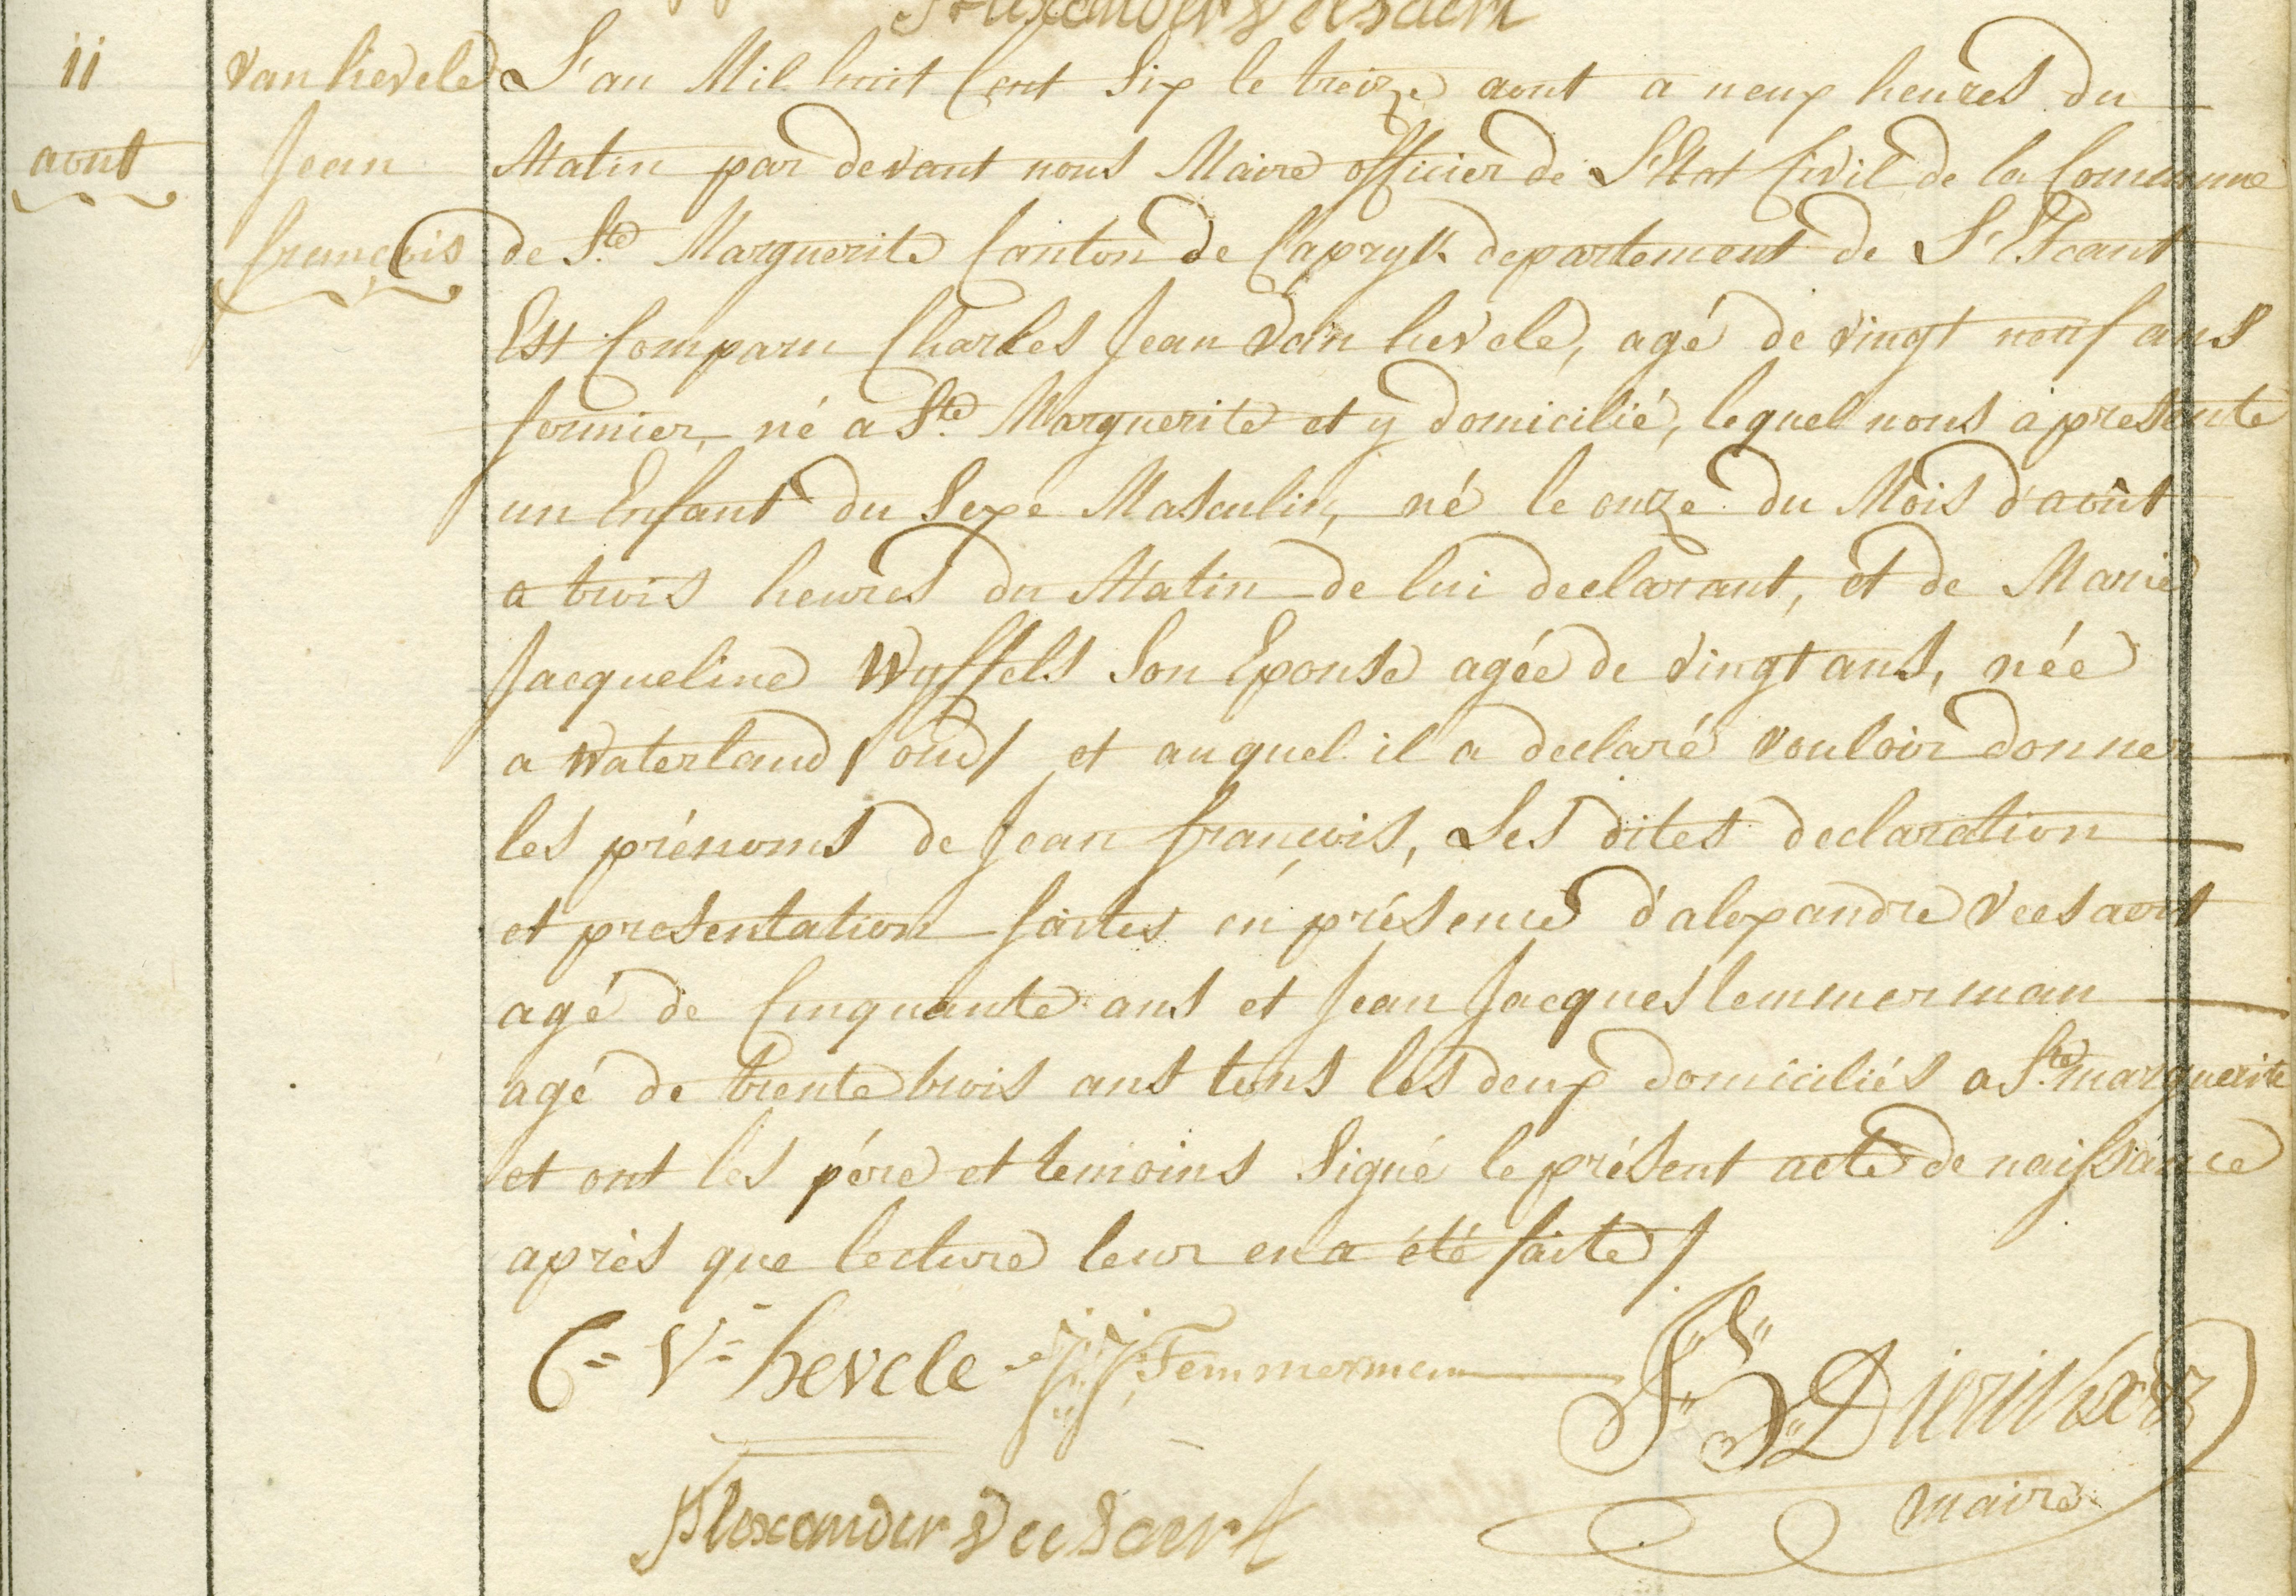 11
aout
van hevele
Jean
françois
L'an Mil huit Cent Six le treize aout a neuf heures du
Matin par devant nous Maire officier de L'Etat Civil de la Commune
de Ste Marguerite Canton de Capryk departement de L'Escaut
Est Comparu Charles Jean van hevele, agé de vingt neuf ans
fermier, né a Ste Marguerite et y domicilié, lequel nous a presente
un Enfant du Sexe Masculin, né le onze du Mois d'août
a trois heures du Matin de lui declarant, et de Marie
Jacqueline Wyffels Son Epouse agée de vingt ans, née
a Waterland / oud / et auquel il a declaré vouloir donner
les prénoms de Jean françois, Les dites declaration
et presentation faites en présence d'alexandre veesaert
agé de Cinquante ans et Jean Jacques temmerman
agé de trente trois ans tous les deux domiciliés a Ste marguerite
et ont les pére et temoins Signé le présent acte de naissance
après que lecture leur en a été faite /
C= V= hevele J: J: Temmerman
Dierickx
maire
Alexander Veesaert